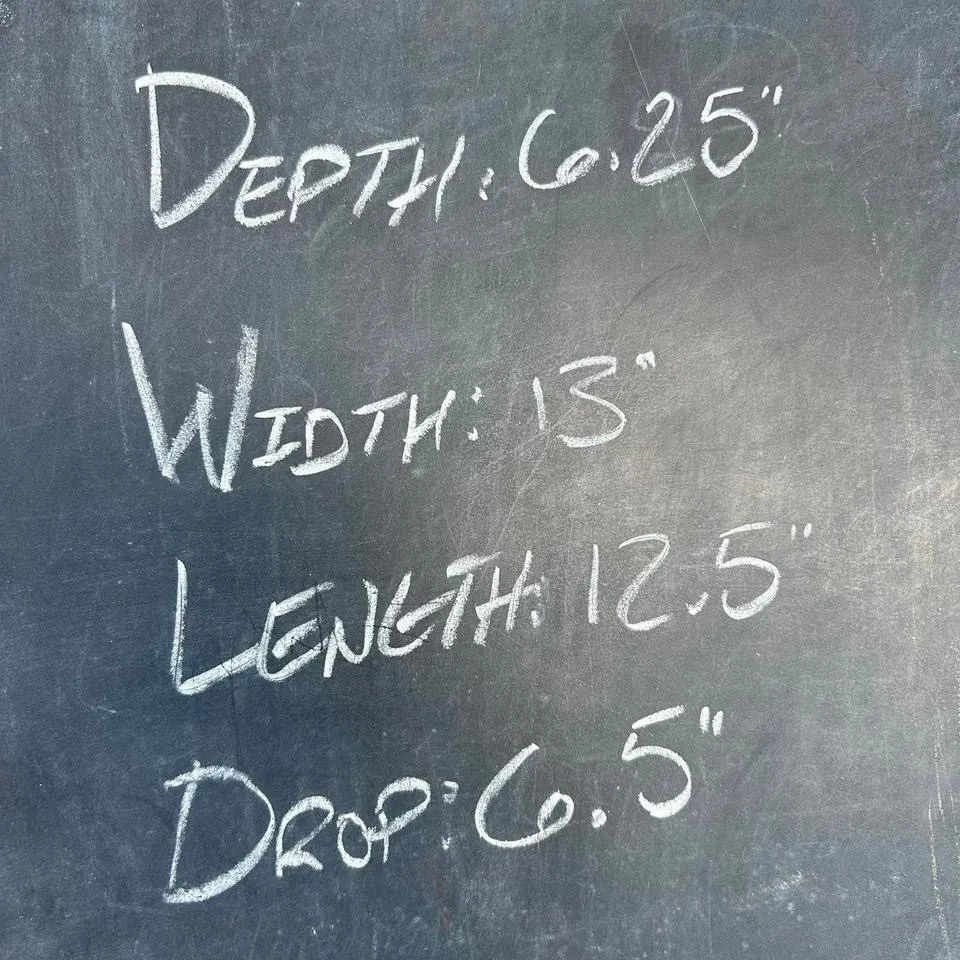 DEPTH: 6.25"
WIDTH: 13"
LENGTH: 12.5"
DROP: 6.5"